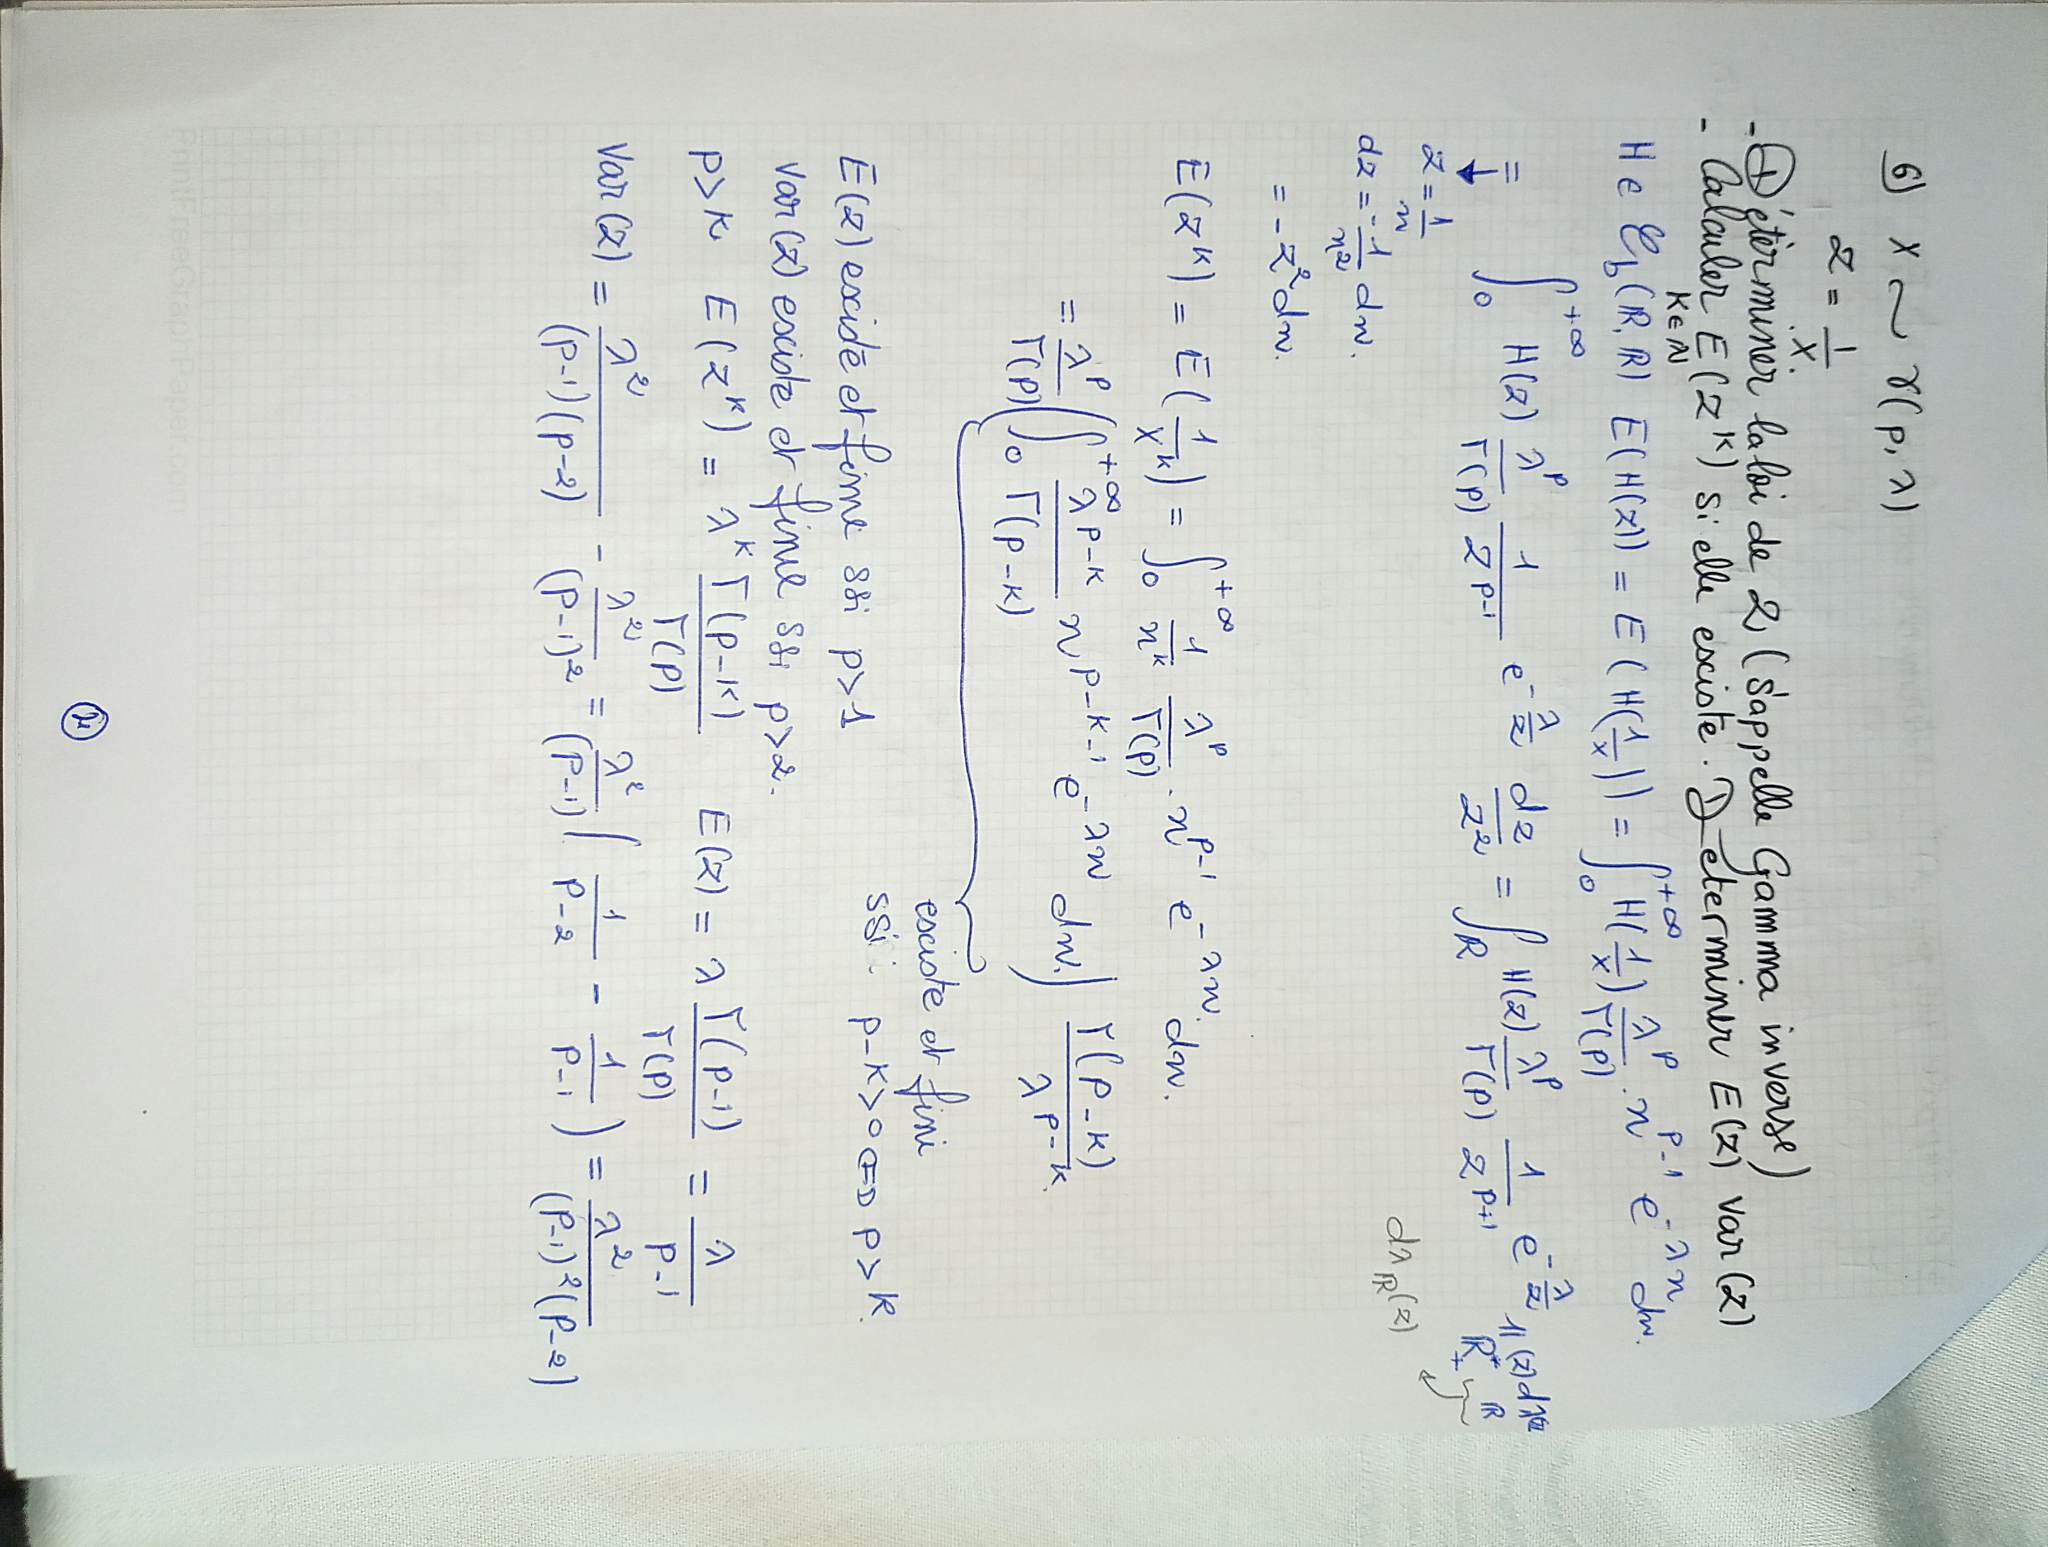 6) X ~ γ(p, λ)
Z = 1/X.
- Déterminer la loi de Z (s'appelle Gamma inverse)
- Calculer E(Z^k) si elle existe. Déterminer E(Z) Var(Z)
k∈ℕ
H ∈ 𝒞_b(ℝ, ℝ) E(H(Z)) = E(H(1/X)) = ∫_0^{+∞} H(1/x) λ^p/Γ(p) . x^{p-1} e^{-λx} dx.
= ∫_0^{+∞} H(z) λ^p/Γ(p) 1/z^{p-1} e^{-λ/z} dz/z² = ∫_ℝ H(z) λ^p/Γ(p) 1/z^{p+1} e^{-λ/z} 𝟙_{ℝ*+}(z) dλ_ℝ(z)
z = 1/x
dλ_ℝ(z)
dz = -1/x² dx.
= -z² dx.
E(Z^k) = E(1/X^k) = ∫_0^{+∞} 1/x^k λ^p/Γ(p) . x^{p-1} e^{-λx} dx.
= λ^p/Γ(p) (∫_0^{+∞} λ^{p-k}/Γ(p-k) x^{p-k-1} e^{-λx} dx.) Γ(p-k)/λ^{p-k}
existe et fini
ssi : p-k>0 ⇔ p>k.
E(Z) existe et finie ssi p>1
Var(Z) existe et finie ssi p>2.
p>k E(Z^k) = λ^k Γ(p-k)/Γ(p) E(Z) = λ Γ(p-1)/Γ(p) = λ/(p-1)
Var(Z) = λ²/((p-1)(p-2)) - λ²/(p-1)² = λ²/(p-1) (1/(p-2) - 1/(p-1)) = λ²/((p-1)²(p-2))
PrintFreeGraphPaper.com